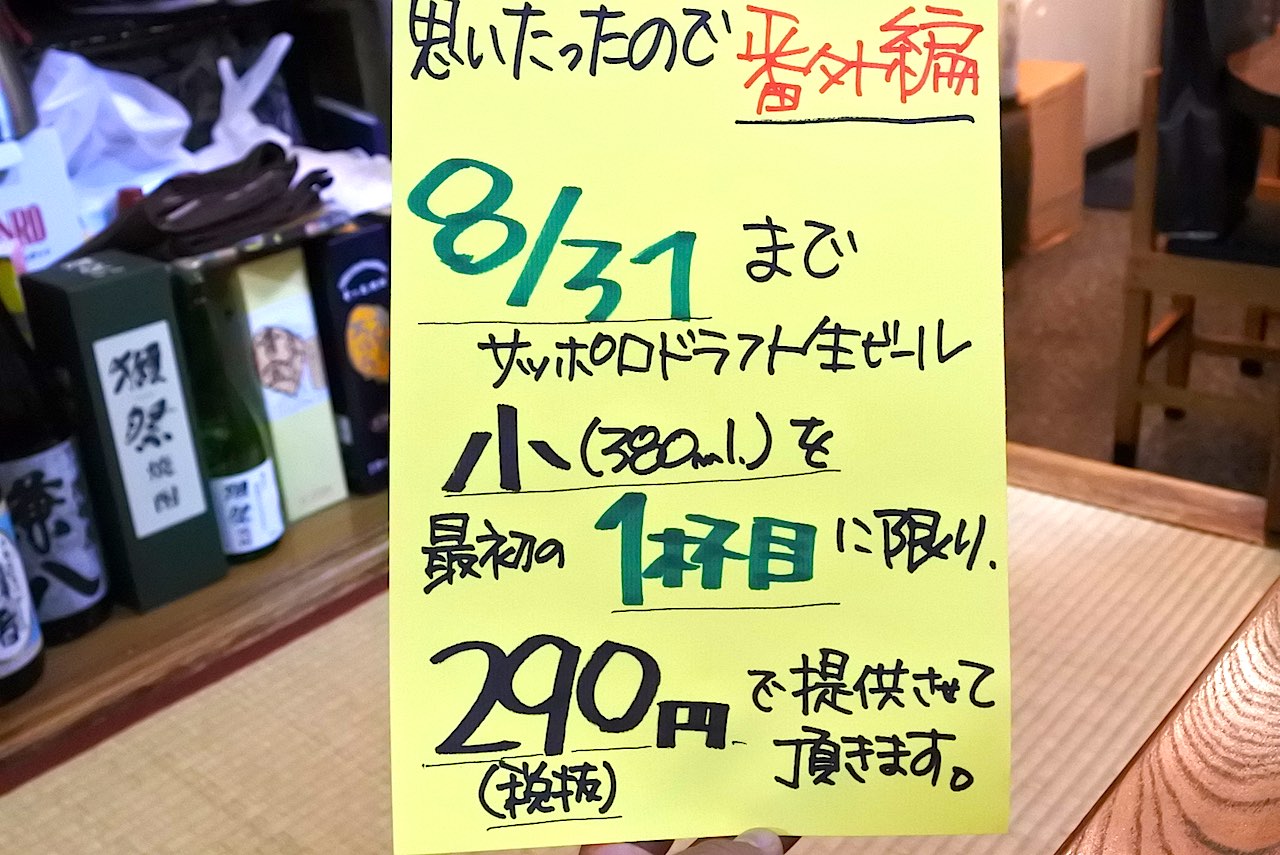 思いたったので 番外編
8/31 まで
サッポロドラフト生ビール
小(380ml.)を
最初の 1杯目 に限り.
290円 で提供させて
(税抜) 頂きます。
獺祭
焼酎
獺祭
兼八
NRO